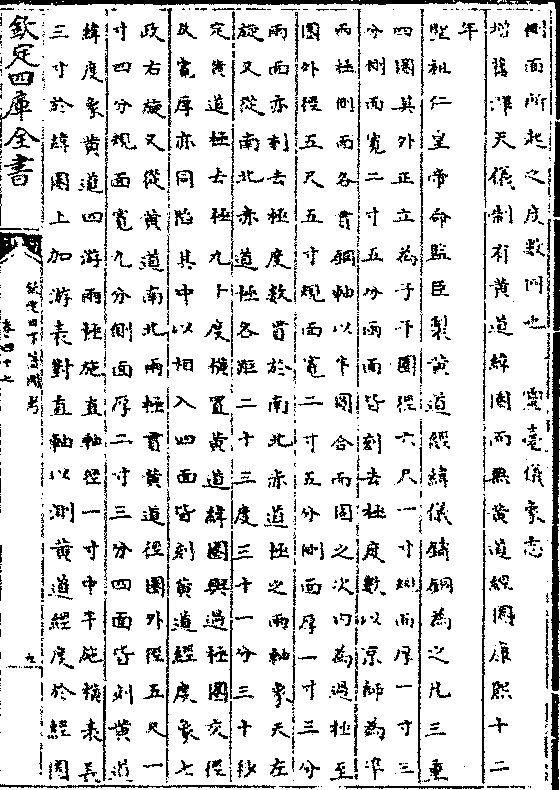 側面所起之度數同也　靈臺儀象志
增舊渾天儀制有黃道緯圈而無黃道經圈康熙十二
年
聖祖仁皇帝命監臣製黃道經緯儀鑄銅為之凡三重
四圈其外正立為子午圈徑六尺一寸規面厚一寸三
分側面寬二寸五分兩面皆刻去極度數以京師為準
兩極側面各貫鋼軸以下圈合而固之次內為過極至
圈外徑五尺五寸規面寬二寸五分側面厚一寸三分
兩面亦刻去極度數貫於南北赤道極之兩軸象天左
旋又從南北赤道極各距二十三度三十一分三十秒
定黃道極去極九十度橫置黃道緯圈與過極圈交徑
及寬厚亦同陷其中以相入四面皆刻黃道經度象七
政右旋又從黃道南北兩極貫黃道徑圈外徑五尺一
寸四分規面寬九分側面厚二寸三分四面皆刻黃道
緯度象黃道四游兩極施直軸徑一寸中半施橫表長
三寸於緯圈上加游表對直軸以測黃道經度於經圈
欽定四庫全書
欽定日下舊聞考
卷四十六
九